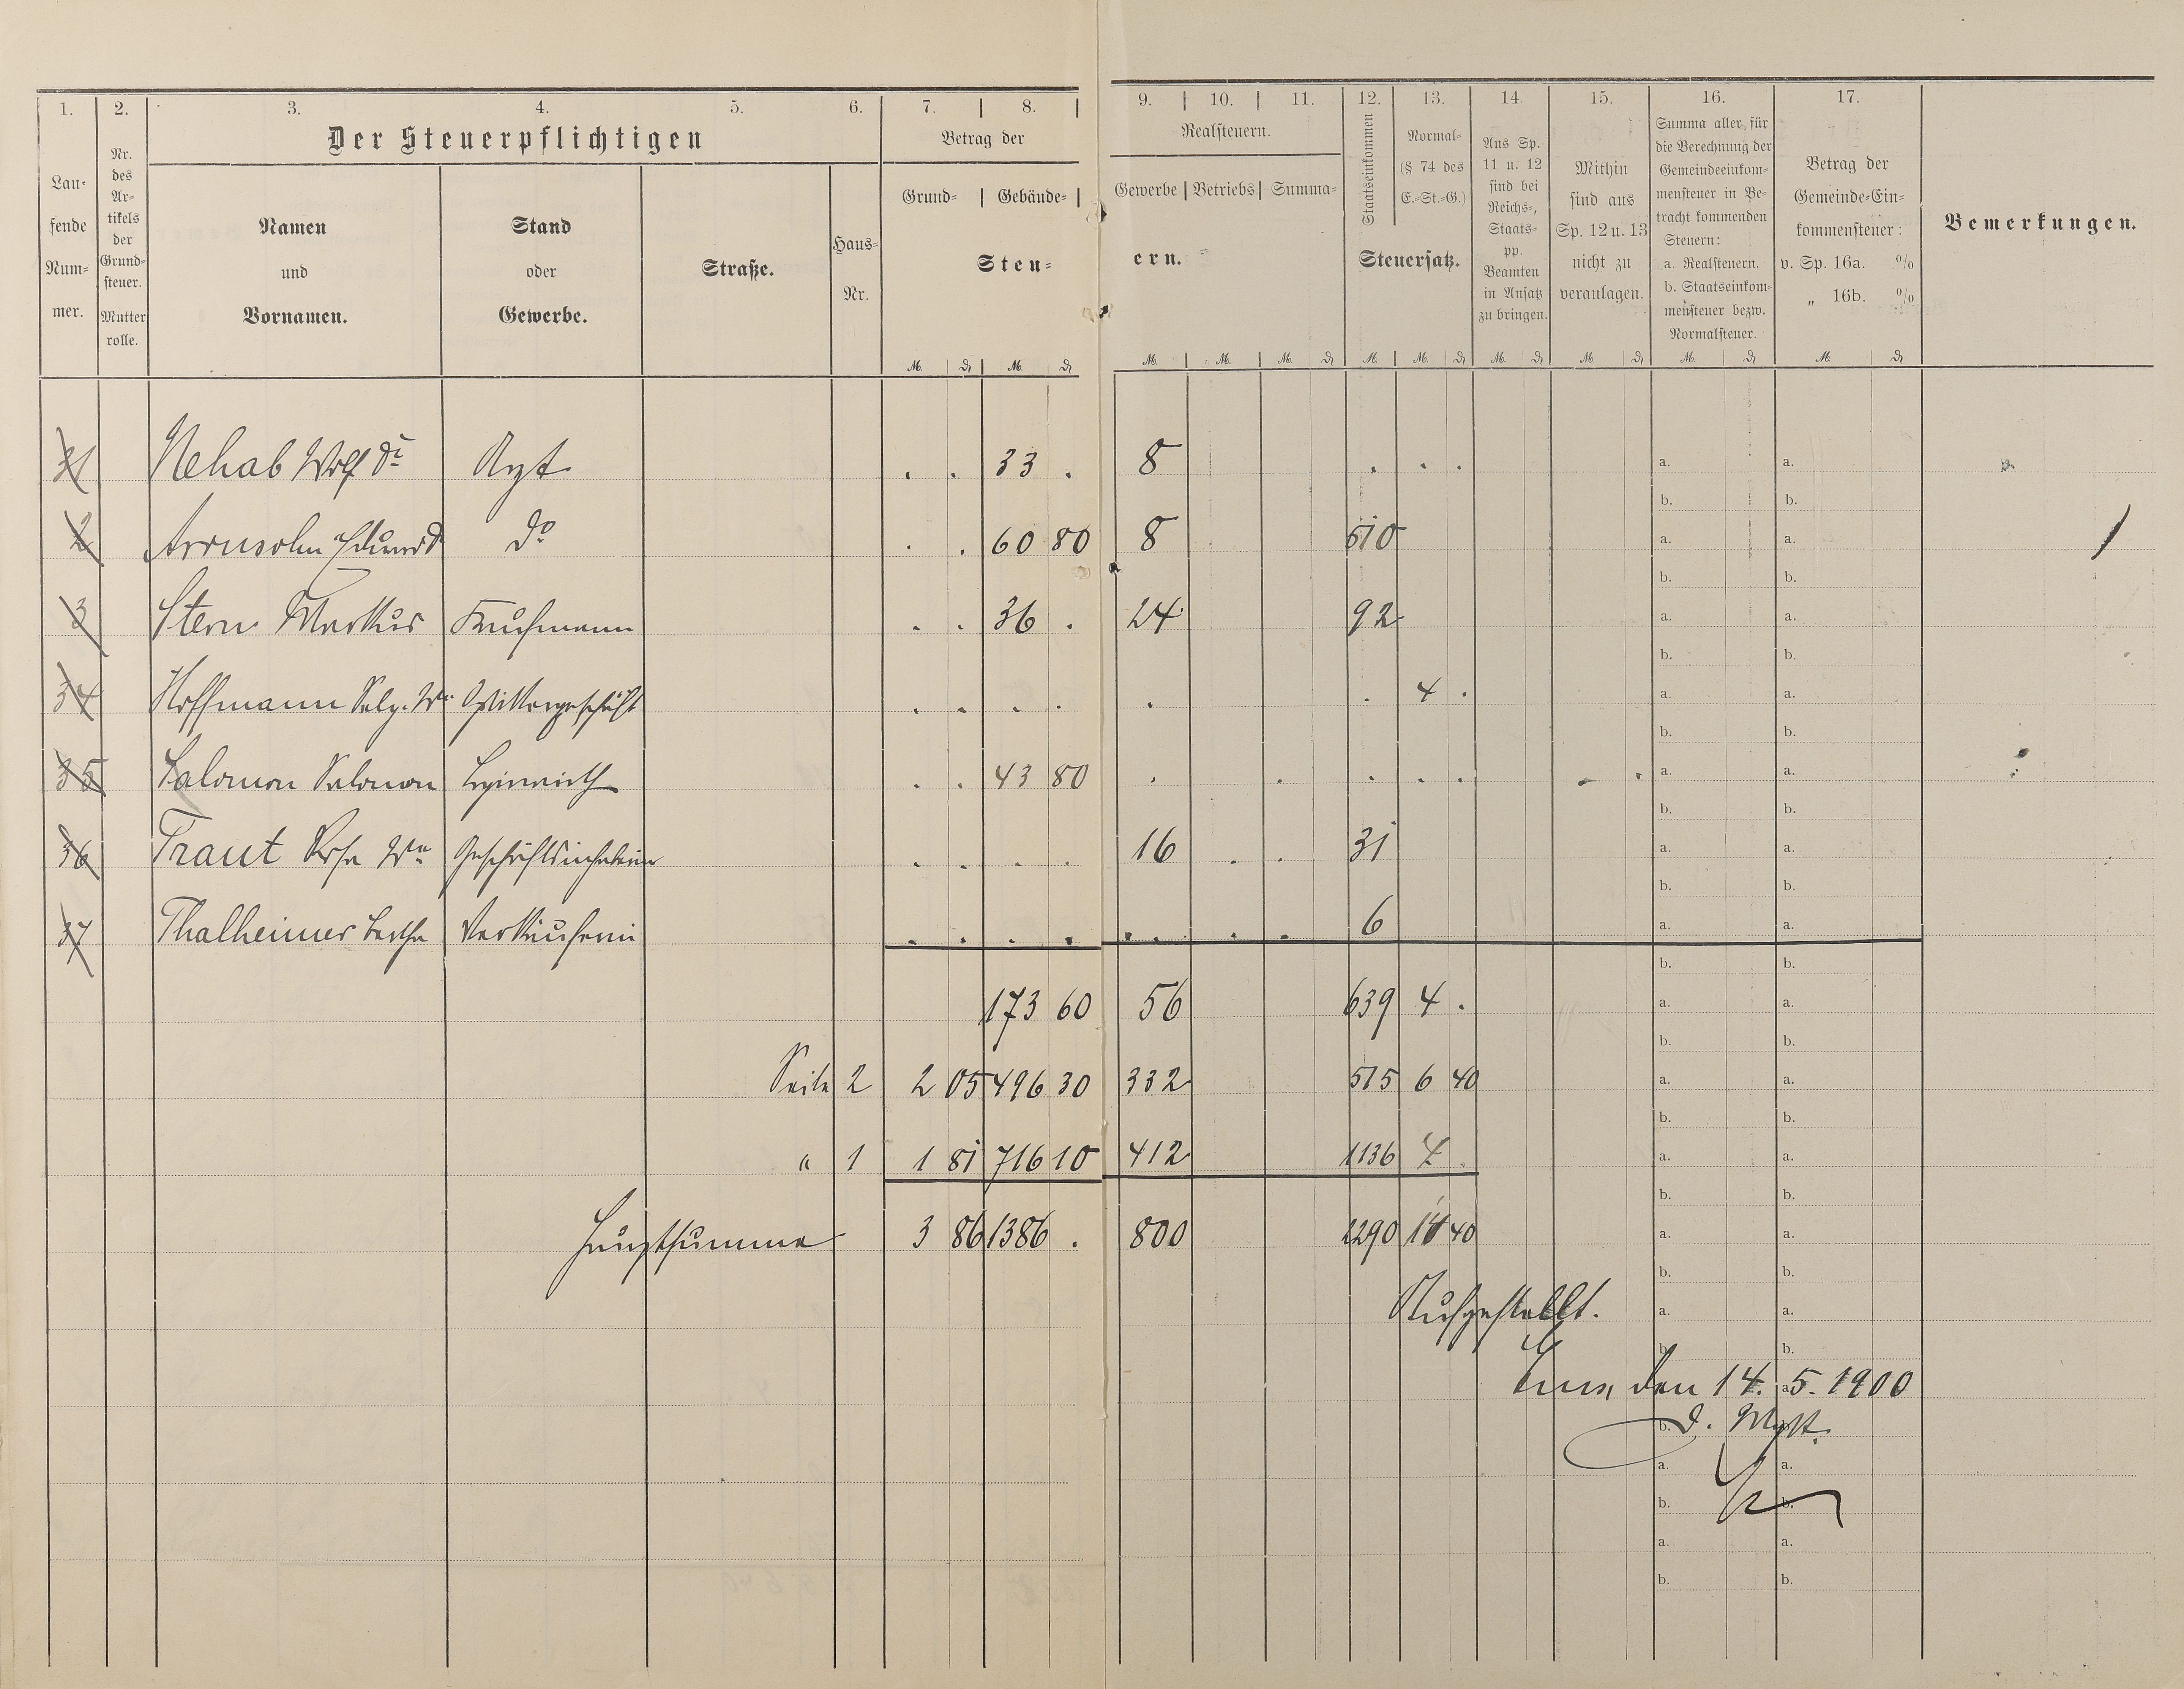 1. 2. 3. 4. 5. 6. 7. 8. 9. 10. 11. 12. 13. 14. 15. 16. 17.
Lau- fende Num- mer.
Nr. des Ar- tikels der Grund- steuer. Mutter rolle.
Der Steuerpflichtigen
Namen und Vornamen.
Stand oder Gewerbe.
Straße.
Haus- Nr.
Betrag der
Grund- Gebäude-
Steu-
Realsteuern.
Gewerbe Betriebs Summa-
ern.
Staatseinkommen
Normal- (§ 74 des E.-St.-G.)
Steuersatz.
Aus Sp. 11 u. 12 sind bei Reichs-, Staats- pp. Beamten in Ansatz zu bringen.
Mithin sind aus Sp. 12 u. 13 nicht zu veranlagen.
Summa aller, für die Berechnung der Gemeindeeinkom- mensteuer in Be- tracht kommenden Steuern: a. Realsteuern. b. Staatseinkom- mensteuer bezw. Normalsteuer.
Betrag der Gemeinde-Ein- kommensteuer: v. Sp. 16a. % „ 16b. %
Bemerkungen.
M. ₰ M. ₰ M. M. M. ₰ M. M. ₰ M. ₰ M. ₰ M. ₰ M. ₰
31 Nehab Wolf Dr Arzt . . 33 . 8 . . .
2 Aronsohn Eduard do . . 60 80 8 510
3 Stern Markus Kaufmann . . 36 . 24 92
34 Hoffmann Salg. We . . . . . . 4 .
35 Salomon Salomon . . 43 80 . . . . . . .
36 Traut Rosa We Geschäftsinhaberin . . . . 16 . . 31
37 Thalheimer Bertha Verkäuferin . . . . . . . . 6
173 60 56 639 4 .
Seite 2 2 05 496 30 332 515 6 40
" 1 1 81 716 10 412 1136 4 .
Hauptsumme 3 86 1386 . 800 2290 14 40
Aufgestellt.
Ems, den 14. 5. 1900
D. Mgst.
a. a.
b. b.
a. a.
b. b.
a. a.
b. b.
a. a.
b. b.
a. a.
b. b.
a. a.
b. b.
a. a.
b. b.
a. a.
b. b.
a. a.
b. b.
a. a.
b. b.
a. a.
b. b.
a. a.
b. b.
a.
b.
a. a.
b. b.
a. a.
b. b.